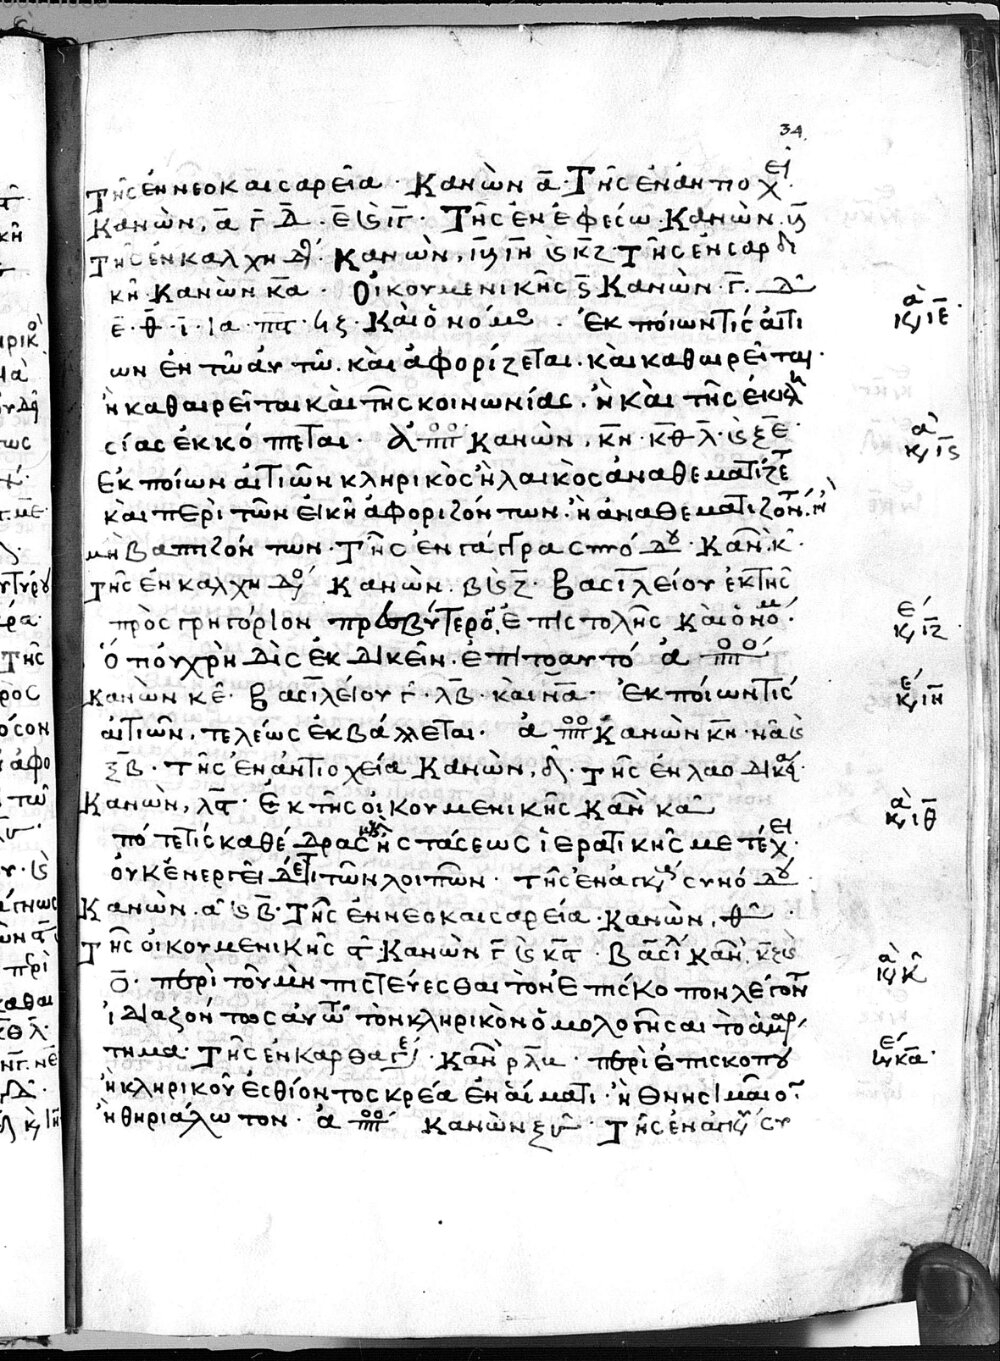 34
Τῆς ἐν νεοκαισαρεία · Κανὼν α̅ · Τῆς ἐν ἀντιοχεί
Κανὼν, α̅ γ̅ δ̅ · ε̅ ϗ ιγ̅ · Τῆς ἐν ἐφέσω Κανὼν
Τῆς ἐν καλχηδό Κανὼν, ιη̅ ϗ κζ̅ · Τῆς ἐν σαρδι
κῆ · Κανὼν κα̅ · Οἰκουμενικῆς ς̅ · Κανὼν · γ̅ · δ̅
ε̅ · θ̅ · ι̅ · ια · Καὶ ὁ νόμο · Ἐκ ποίων τίς αἰτι
ων ἐν τῶ αὐτῶ · καὶ ἀφορίζεται · καὶ καθαιρεῖται ·
ἢ καθαιρεῖται καὶ τῆς κοινωνίας · ἢ καὶ τῆς ἐκκλη
σίας ἐκκόπτεται · Κανὼν, κη̅ · κθ̅ λ̅ · ϗ ξε̅ ·
Ἐκ ποίων αἰτιῶν κληρικὸς ἢ λαικὸς ἀναθεματίζετ
καὶ περὶ τῶν εἰκῆ ἀφοριζόντων · ἢ ἀναθεματιζόντ · ἢ
μὴ βαπτιζόντων · Τῆς ἐν γάγγρα συνόδου · Καν κ ·
Τῆς ἐν καλχηδό Κανὼν · β ϗ ζ̅ · Βασιλείου ἐκ τῆς
πρὸς γρηγόριον πρεσβύτερο, ἐπιστολῆς καὶ ὁ νόμ ·
Ὁποὺ χρὴ δὶς ἐκδικεῖν · ἐπιτοαυτό ἀ
Κανὼν κε · Βασιλείου γ · λβ̅ · καὶ να̅ · Ἐκ ποίων τίς
αἰτιῶν, τελέως ἐκβάλλεται · ἀ Κανὼν κη · να ϗ
ξβ · τῆς ἐν ἀντιοχεία Κανὼν, δ · τῆς ἐν λαοδικ
Κανὼν, λς · Ἐκ τῆς οἰκουμενικῆς Καν κα
πότε τίς καθέδρας ἢ στάσεως ἱερατικῆς μετέχει
οὐκ ἐνεργεῖ δέ τι τῶν λοιπῶν · τῆς ἐν ἀγκ συνόδου
Κανὼν · α ϗ β̅ · Τῆς ἐν νεοκαισαρεία · Κανὼν, θ ·
Τῆς οἰκουμενικῆς · Κανὼν γ̅ ϗ κς · Βασι καν
ο̅ · περὶ τοῦ μὴ πιστεύεσθαι τὸν ἐπίσκοπον λέγοντ
ἰδιάζόντως αὐτῶ τὸν κληρικὸν ὁμολογῆσαι τὸ ἁμάρ
τημα · Τῆς ἐν καρθαγέ · Καν ρλα · περὶ ἐπισκόπου
ἢ κληρικοῦ ἐσθίοντος κρέα ἐν αἵματι · ἢ θνησιμαῖο
ἢ θηριάλωτον · ἀ Κανὼν ξγ · Τῆς ἐν ἀγκ συ
ἀ
κ, ιε̅ ·
ἀ
κ, ις̅
ε
κ, ιζ
ε
κ, ιη̅
ἀ
κ, ιθ̅
ἀ
κ, κ
ε
κ, κα ·